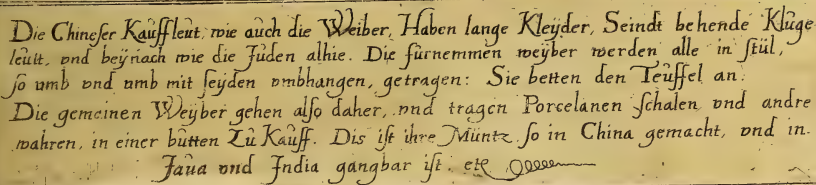 Die Chineſer Kauffleut, wie auch die Weiber, Haben lange Kleyder, Seindt behende Kluge
leutt, vnd beÿnach wie die Juden alhie. Die fürnemmen weÿber werden alle in ſtül,
ſo vmb vnd vmb mit ſeÿden vmbhangen, getragen: Sie betten den Teuffel an:
Die gemeinen Weÿber gehen alſo daher, vnd tragen Porcelanen ſchalen vnd andre
wahren, in einer butten Zu Kauff. Dis iſt ihre Müntz ſo in China gemacht, vnd in.
Jaua vnd India gangbar iſt. etc